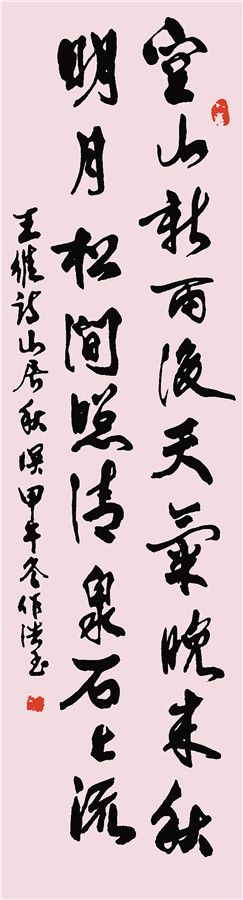 空山新雨後天氣晚来秋
明月松間照清泉石上流
王維詩山居秋暝甲午冬作浩玉